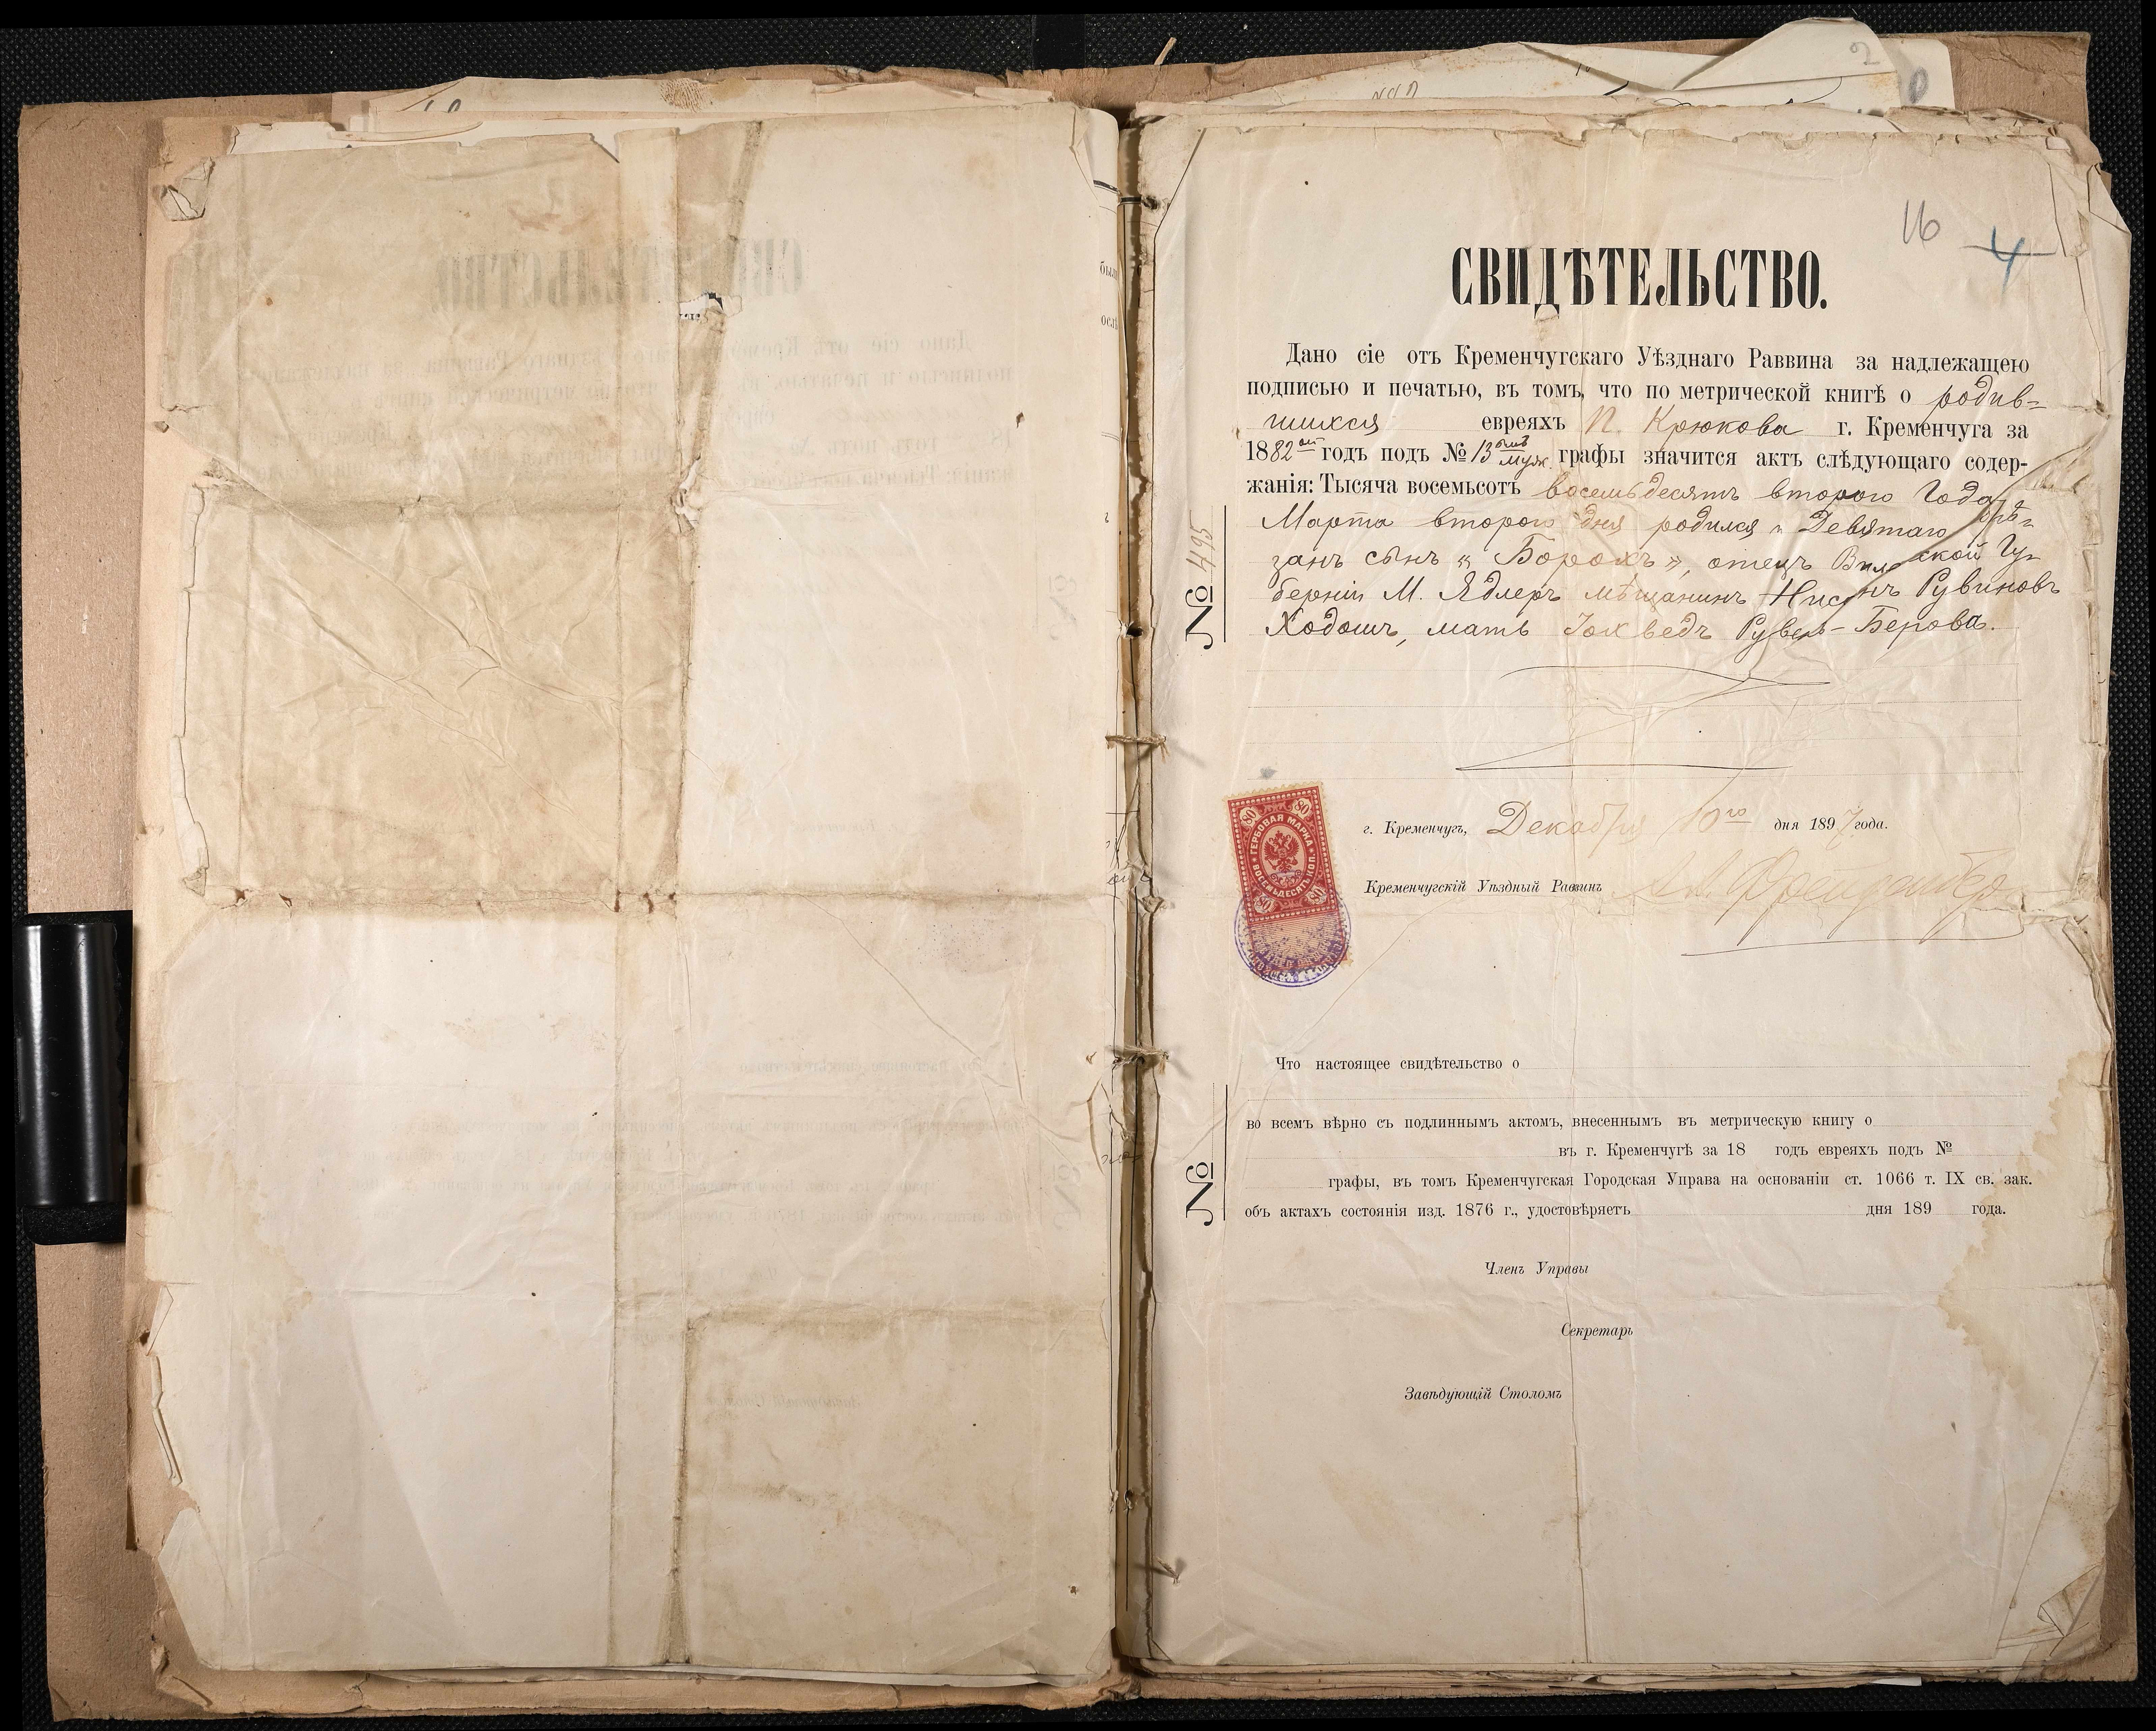 16 4
СВИДѢТЕЛЬСТВО.
Дано сіе отъ Кременчугскаго Уѣзднаго Раввина за надлежащею
подписью и печатью, въ томъ, что по метрической книгѣ о родив-
шихся евреяхъ П. Крюкова г. Кременчуга за
1882 годъ подъ № 13 муж. графы значится актъ слѣдующаго содер-
жанія: Тысяча восемьсотъ восемьдесятъ второго Года
Марта второго дня родился и Девятаго обрѣ-
занъ сынъ „Борохъ", отецъ Виленской Гу-
берніи М. Ядлеръ мѣщанинъ Нисонъ Рувиновъ
Ходошъ, мать Іохведъ Рувель-Берова.
№ 495
г. Кременчугъ, Декабря 10го дня 1897 года.
Кременчугскій Уѣздный Раввинъ
80 80
ГЕРБОВАЯ МАРКА
ВОСЕМЬДЕСЯТЪ КОП.
80 80
Что настоящее свидѣтельство о
во всемъ вѣрно съ подлиннымъ актомъ, внесеннымъ въ метрическую книгу о
въ г. Кременчугѣ за 18 годъ евреяхъ подъ №
графы, въ томъ Кременчугская Городская Управа на основаніи ст. 1066 т. IX св. зак.
объ актахъ состоянія изд. 1876 г., удостовѣряетъ дня 189 года.
№
Членъ Управы
Секретарь
Завѣдующій Столомъ